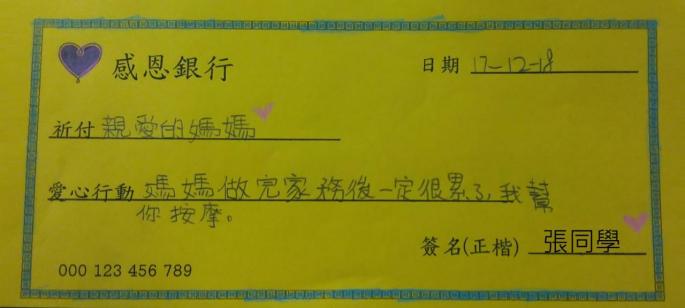 感恩銀行
日期 17-12-18
祈付 親愛的媽媽
愛心行動 媽媽做完家務後一定很累了,我幫
你按摩。
簽名(正楷) 張同學
000 123 456 789